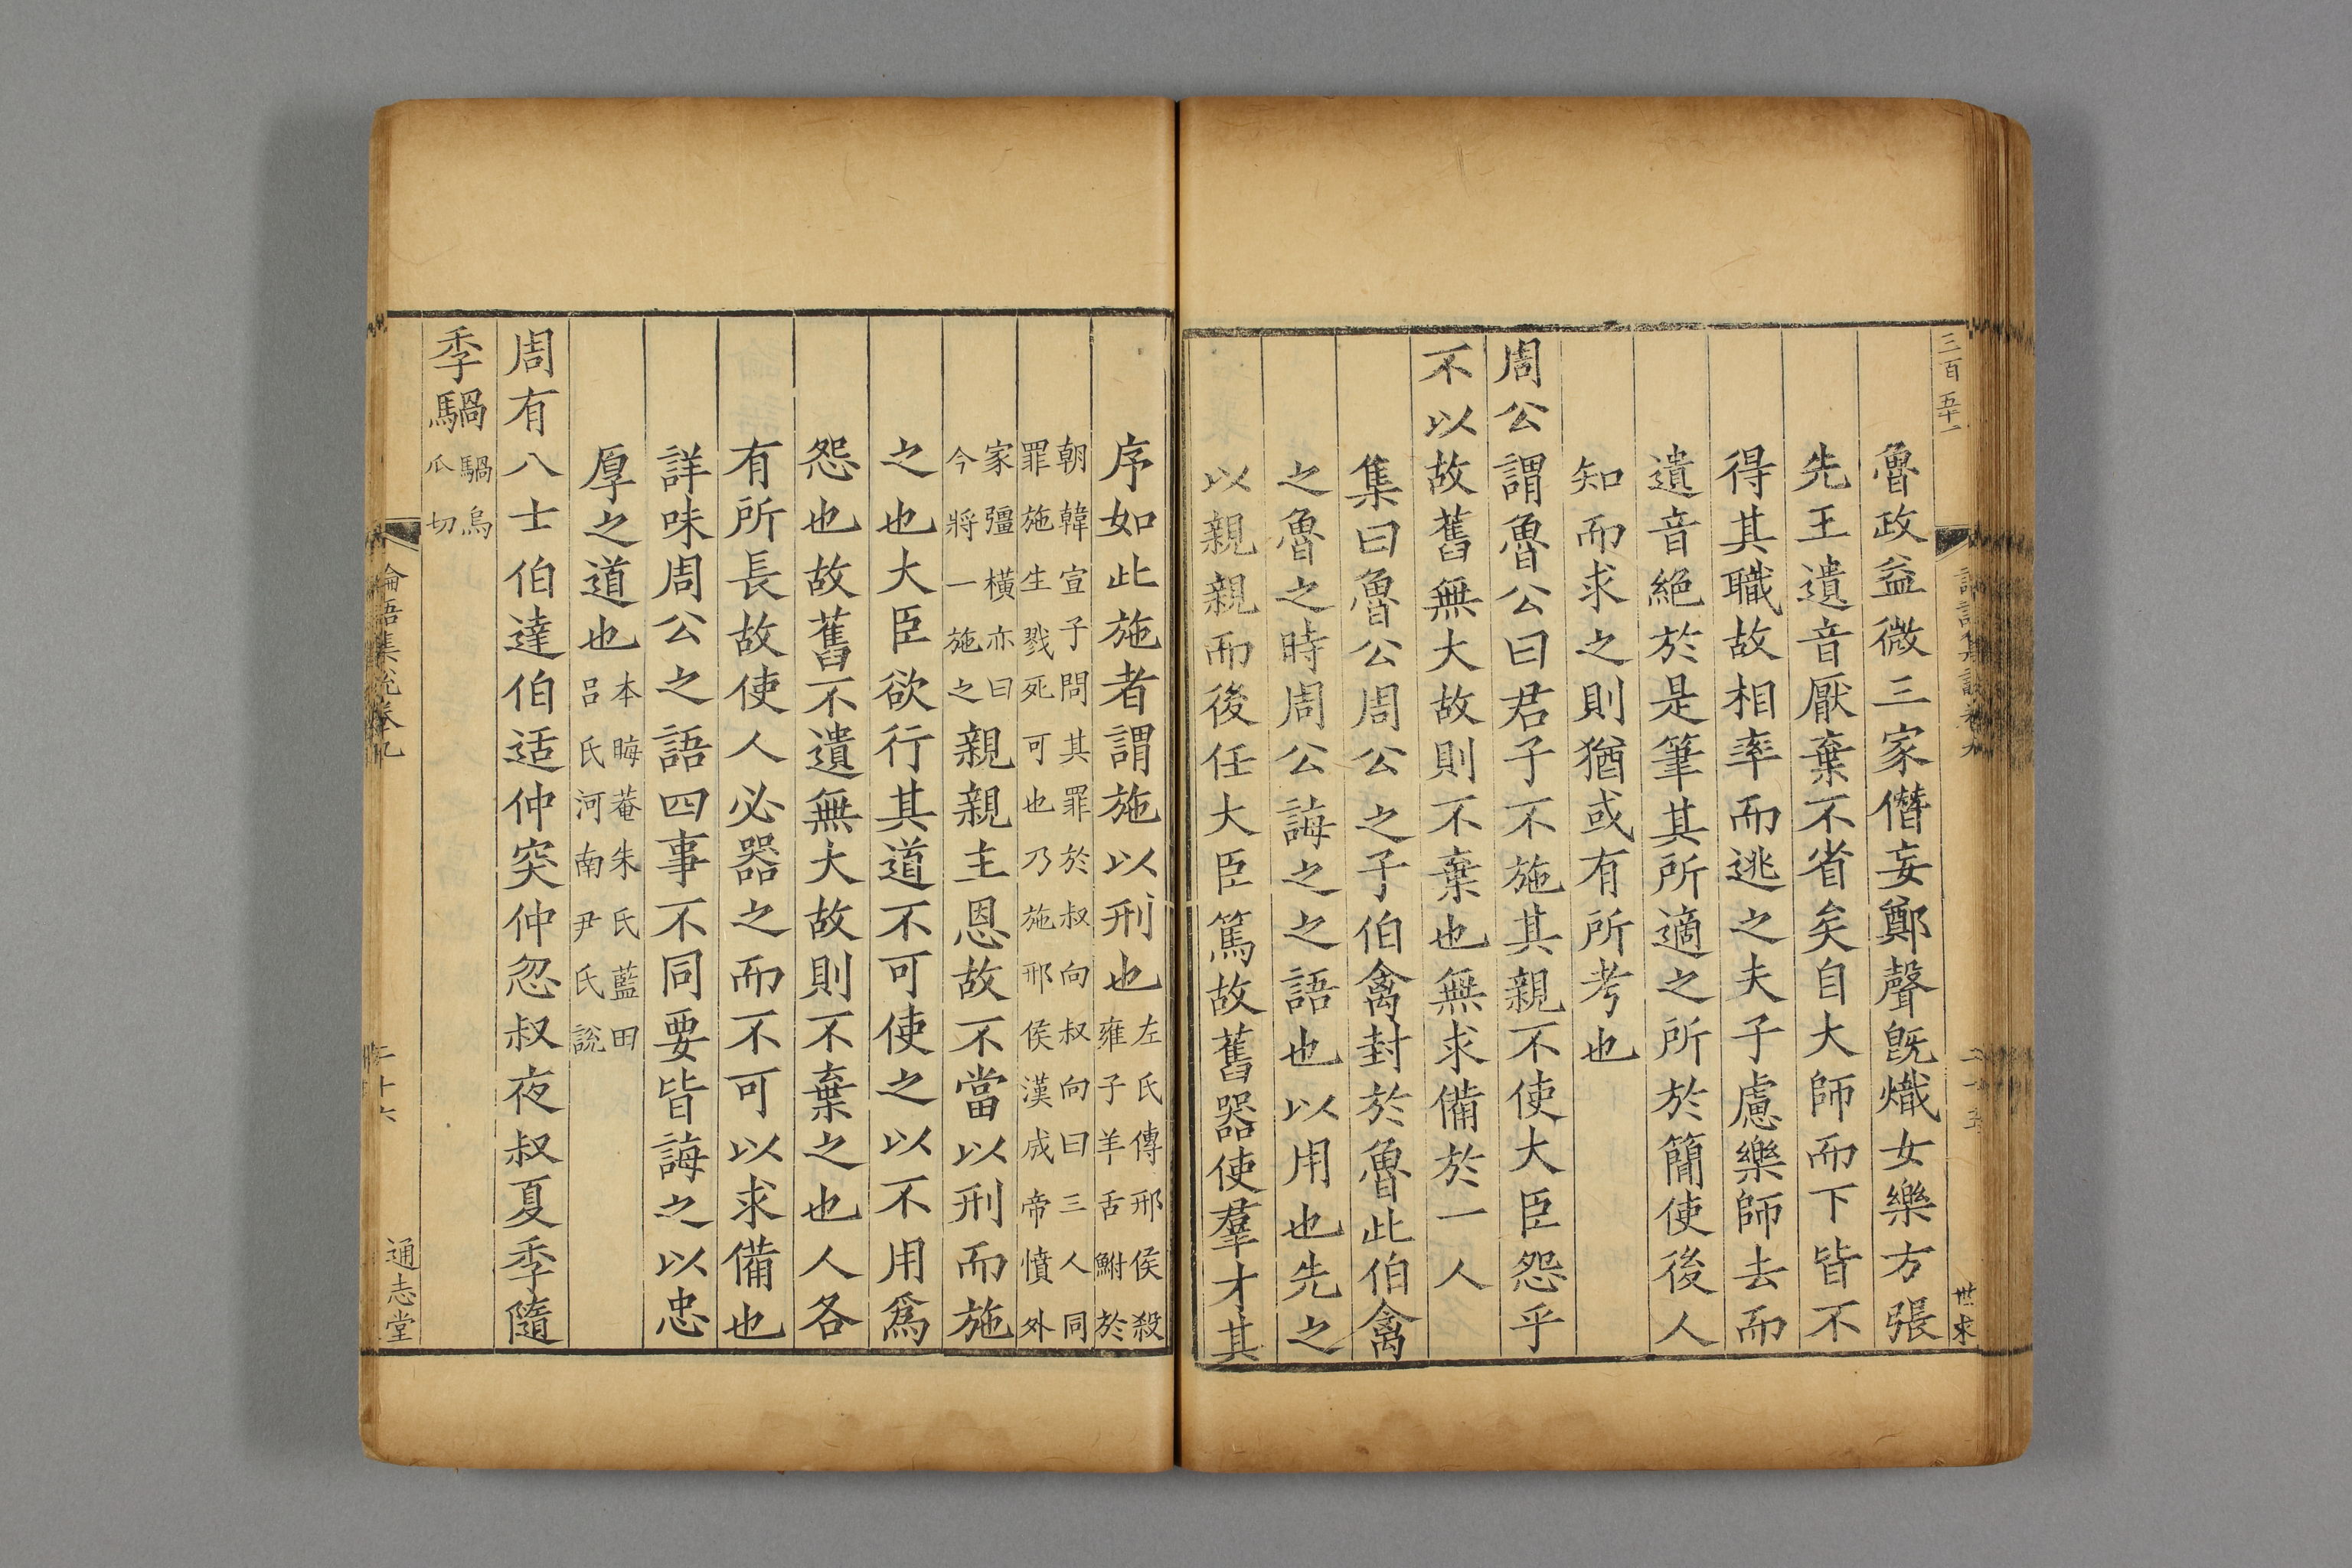 三百五十一
世求
魯政益微三家僭妄鄭聲旣熾女樂方張
先王遺音厭棄不省矣自大師而下皆不
得其職故相率而逃之夫子慮樂師去而
遺音絕於是筆其所適之所於簡使後人
知而求之則猶或有所考也
周公謂魯公曰君子不施其親不使大臣怨乎
不以故舊無大故則不棄也無求備於一人
集曰魯公周公之子伯禽封於魯此伯禽
之魯之時周公誨之之語也以用也先之
以親親而後任大臣篤故舊器使羣才其
序如此施者謂施以刑也左氏傳邢侯殺雍子羊舌鮒於
朝韓宣子問其罪於叔向叔向曰三人同罪施生戮死可也乃施邢侯漢成帝憤外
家彊橫亦曰今將一施之親親主恩故不當以刑而施
之也大臣欲行其道不可使之以不用爲
怨也故舊不遺無大故則不棄之也人各
有所長故使人必器之而不可以求備也
詳味周公之語四事不同要皆誨之以忠
厚之道也本晦菴朱氏藍田呂氏河南尹氏說
周有八士伯達伯适仲突仲忽叔夜叔夏季隨
季騧騧烏瓜切
論語集說卷九
二十六
通志堂